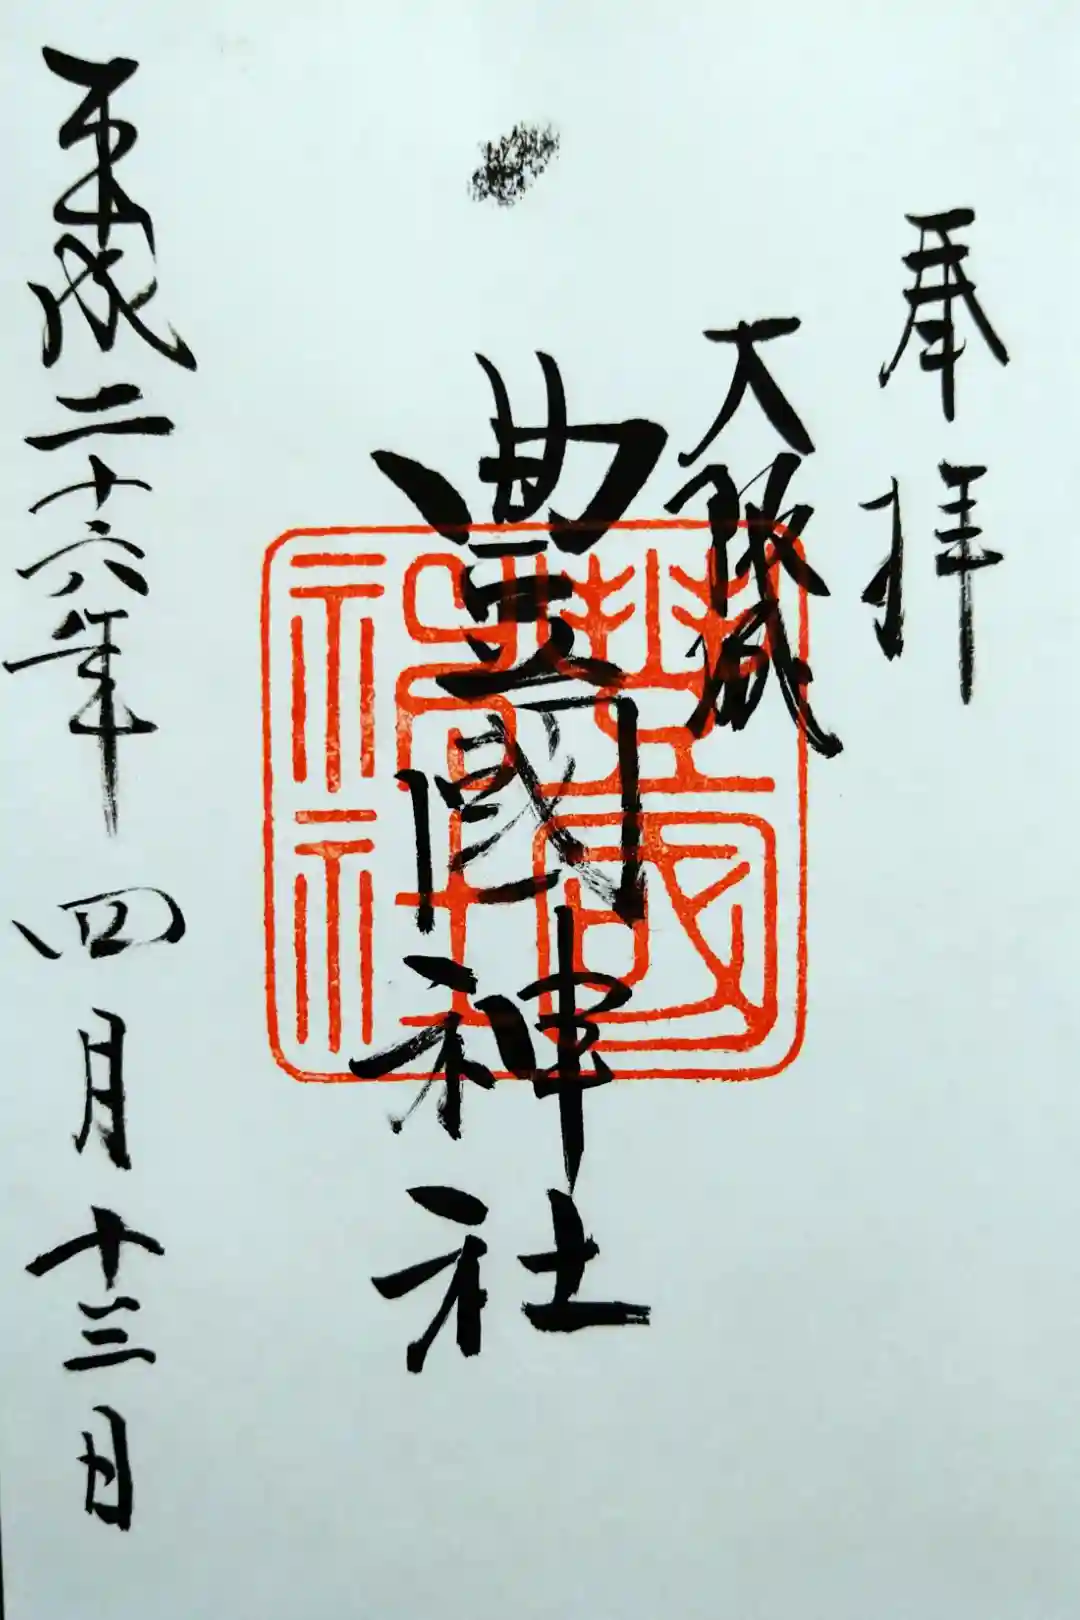 奉拝
大阪城
豊國神社
平成二十六年四月十三日
豊國
神社